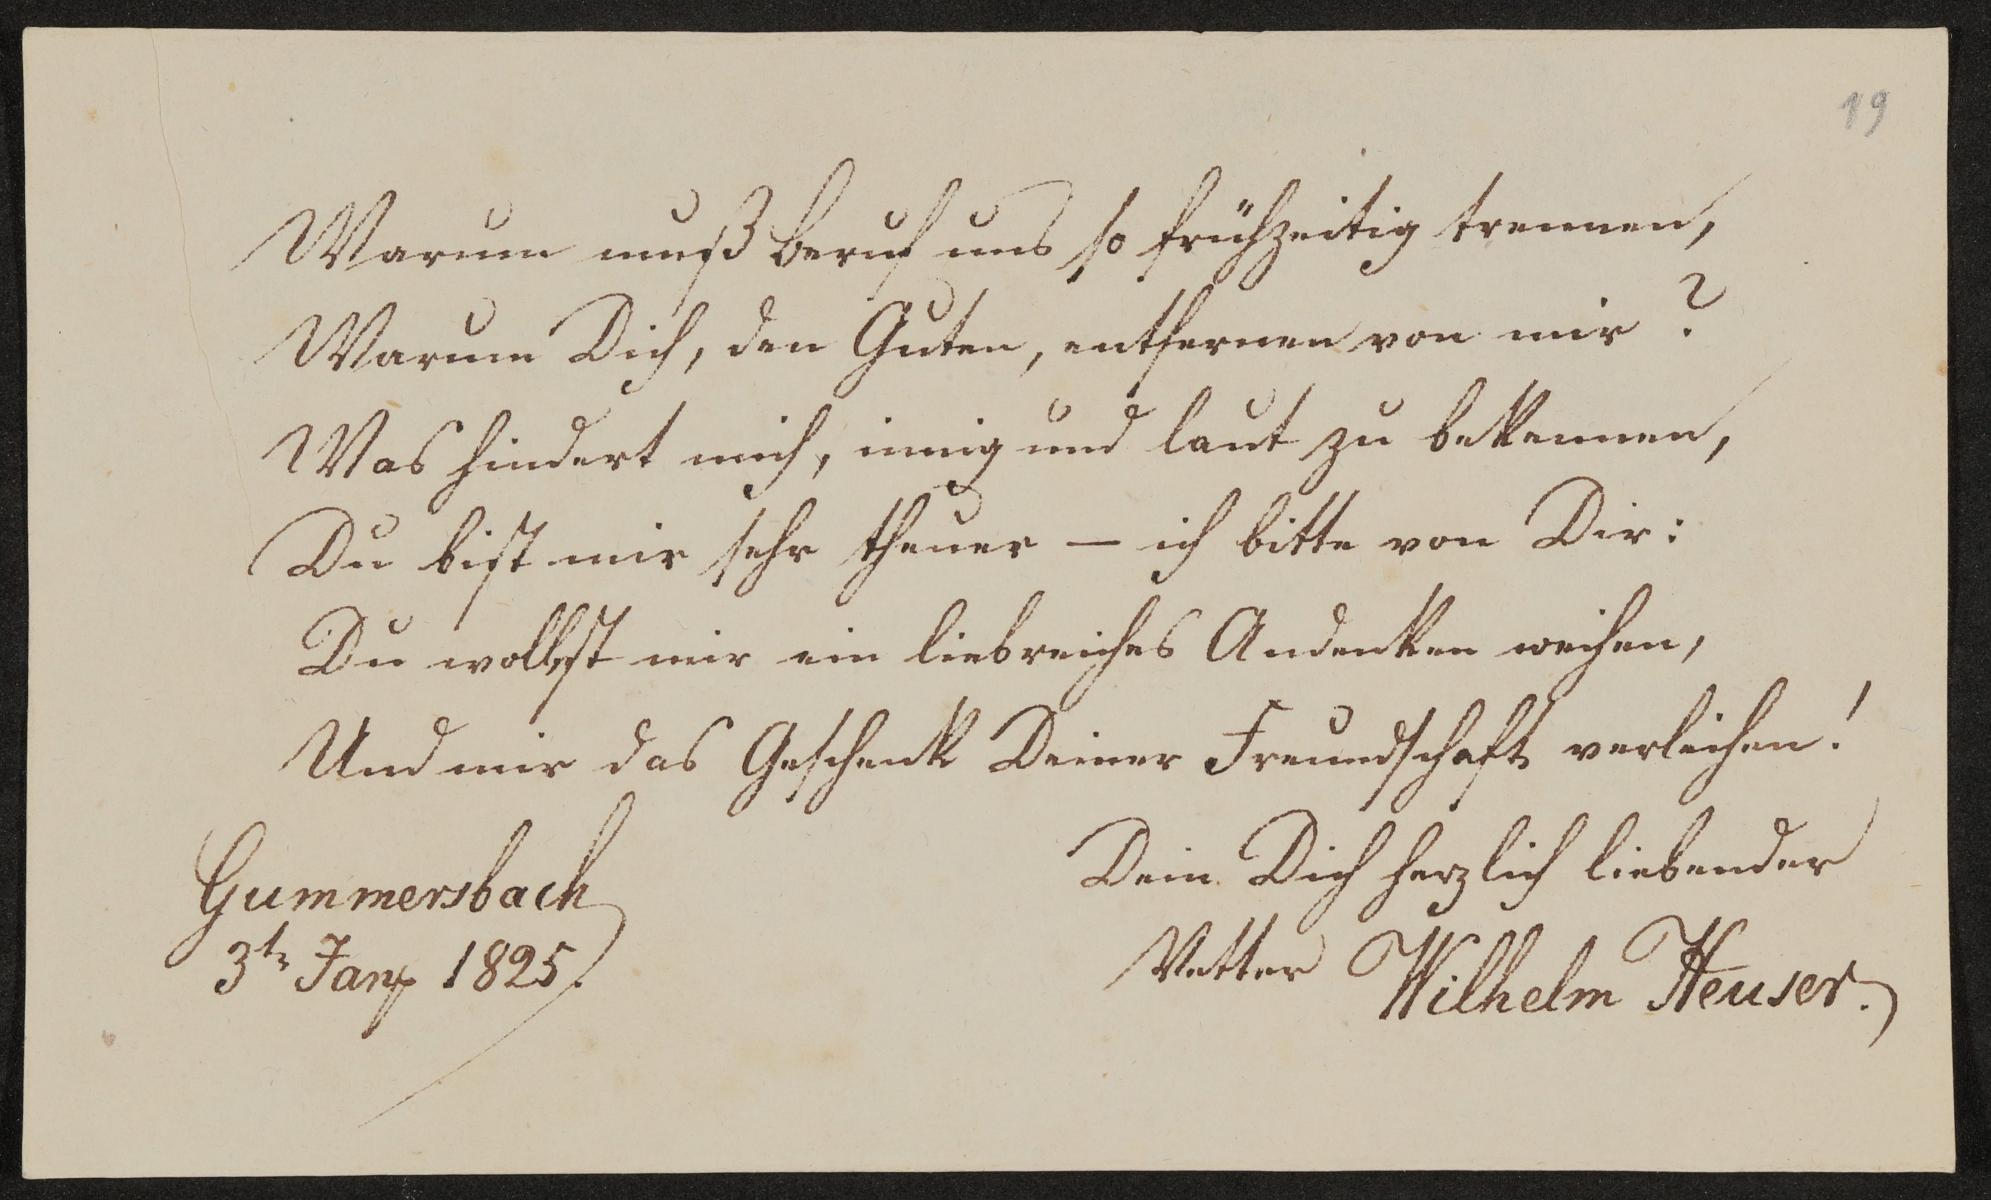 19
Warum muß Beruf uns so frühzeitig trennen,
Warum Dich, den Guten, entfernen von mir?
Was hindert mich, innig und laut zu bekennen,
Du bist mir sehr theuer – ich bitte von Dir:
Du wollest mir ein liebreiches Andenken weihen,
Und mir das Geschenk Deiner Freundschaft verleihen!
Dein Dich herzlich liebender
Vetter Wilhelm Heuser.
Gummersbach
3tr Janr 1825.